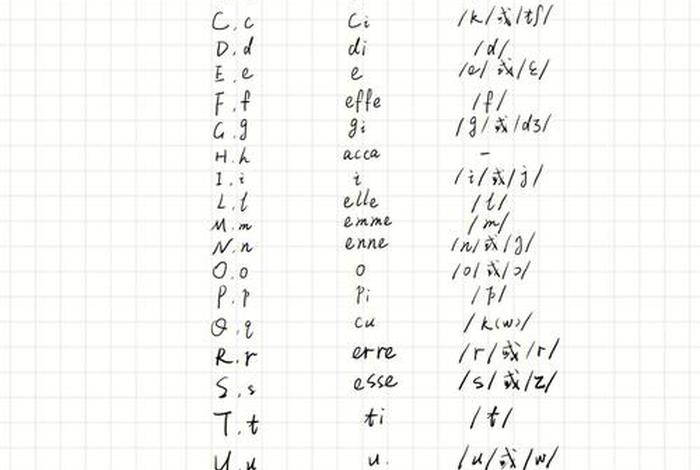 C.c ci /k/或/tʃ/
D.d di /d/
E.e e /e/或/ɛ/
F.f effe /f/
G.g gi /g/或/dʒ/
H.h acca –
I.i i /i/或/j/
L.l elle /l/
M.m emme /m/
N.n enne /n/或/ŋ/
O.o o /o/或/ɔ/
P.p pi /p/
Q.q cu /k(w)/
R.r erre /r/或/r/
S.s esse /s/或/z/
T.t ti /t/
U.u u. /u/或/w/